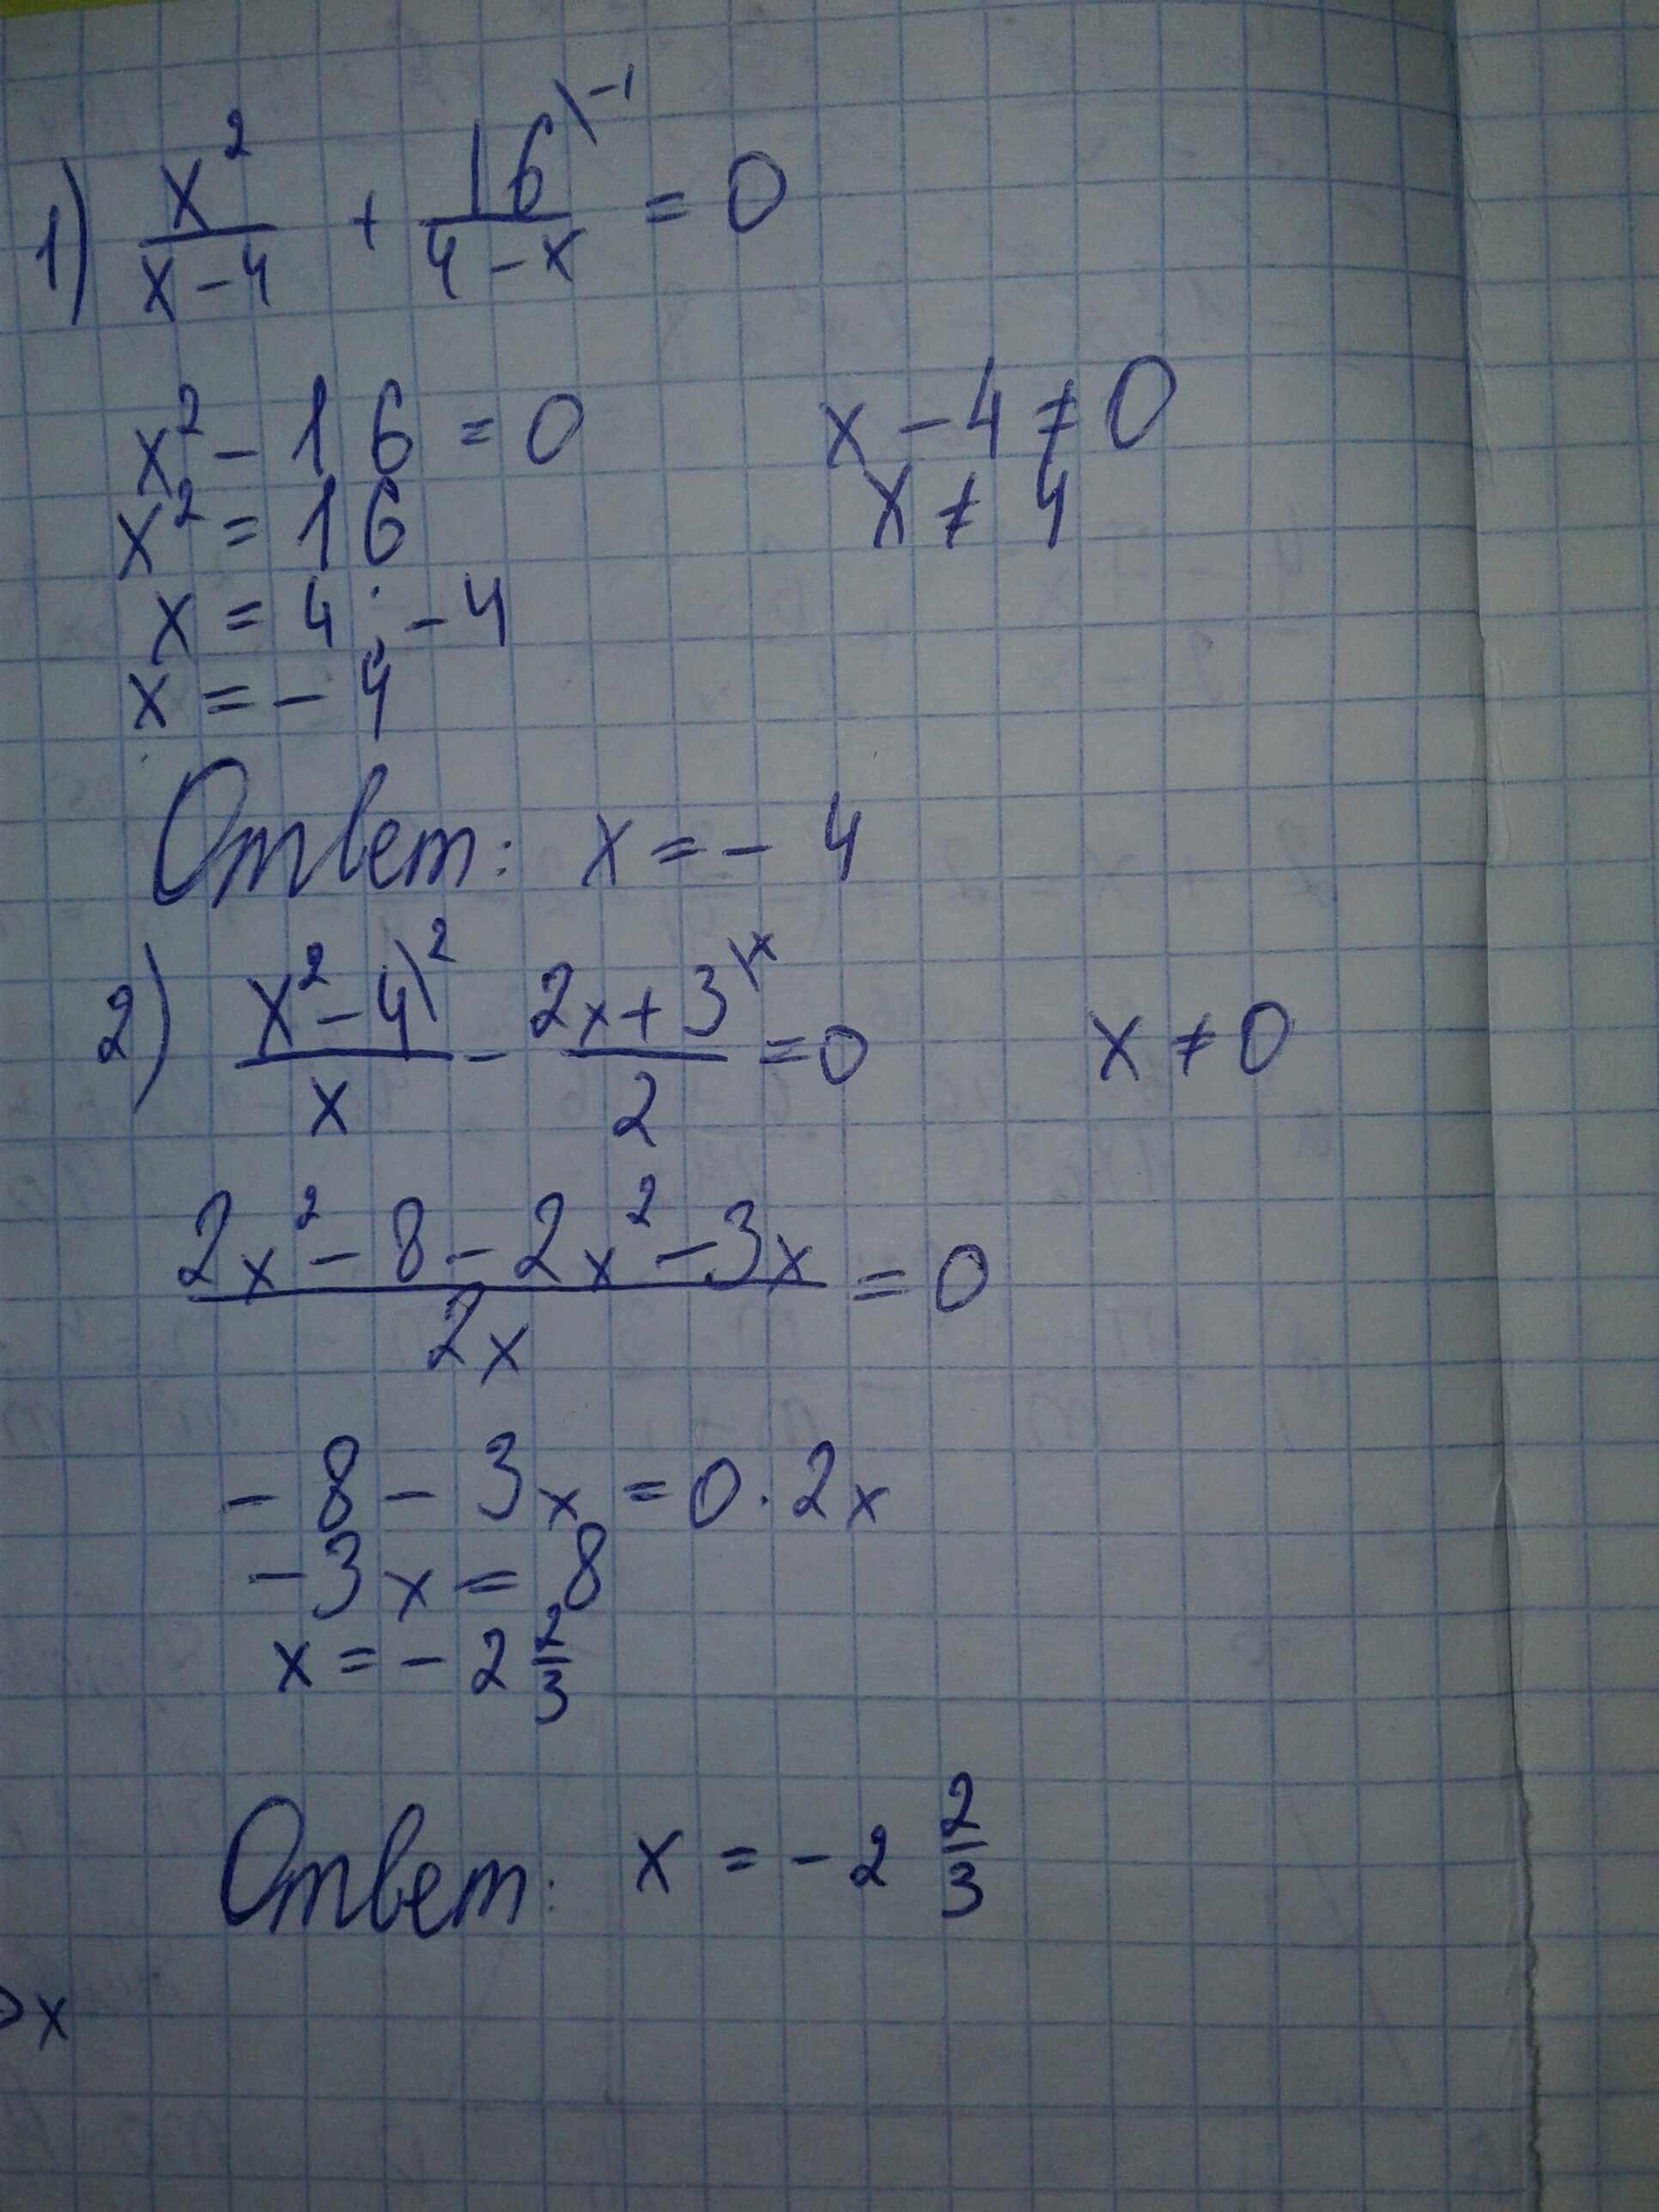 1) x²/(x-4) + 16\⁻¹/(4-x) = 0
x² - 16 = 0 x - 4 ≠ 0
x² = 16 x ≠ 4
x = 4 ; -4
x = -4
Ответ: x = -4
2) (x²-4)\²/x - (2x+3)\ˣ/2 = 0 x ≠ 0
(2x² - 8 - 2x² - 3x)/2x = 0
-8 - 3x = 0 · 2x
-3x = 8
x = -2 2/3
Ответ: x = -2 2/3
x